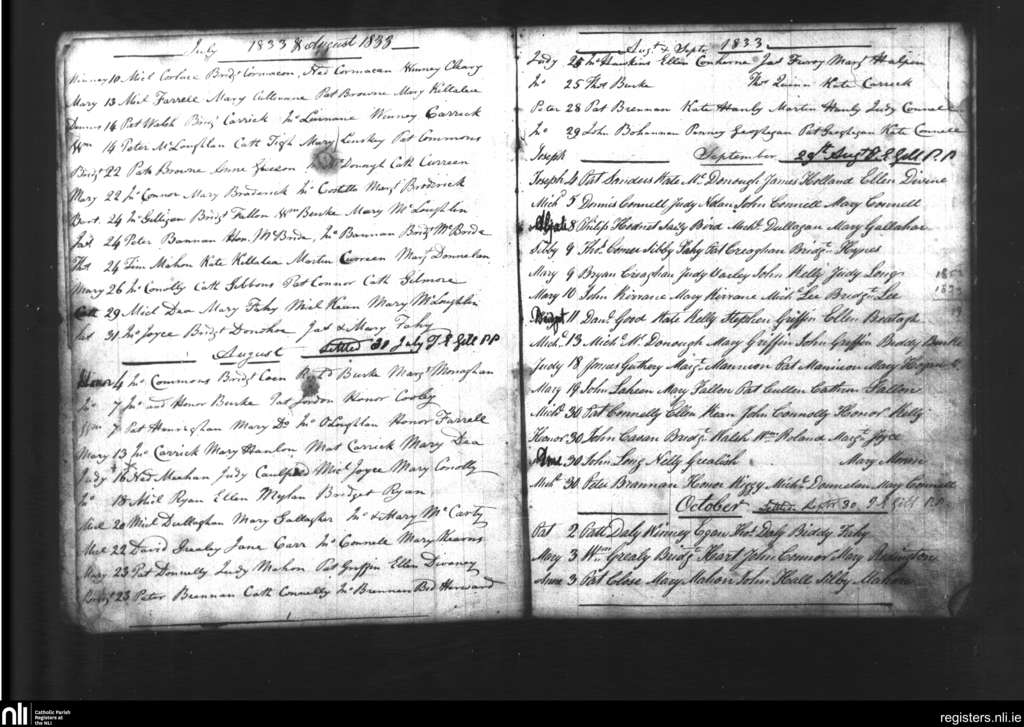 July 1833 & August 1833
Winney 10 Micl Corlnee Bridgt Cormacan, Ned Cormacan Winney Cleary
Mary 13 Micl Farrell Mary Cullenane Pat Browne Mary Killalea
Dennis 14 Pat Walsh Bridgt Carrick Jno Larinane Winney Carrick
Wm 14 Peter McLoughlan Cath Tigh Mary Linskey Pat Commons
Bridgt 22 Patk Browne Anne Gleeson McDonagh Cath Curreen
Mary 22 Jno Connor Mary Broderick Jno Costello Margt Broderick
Bart. 24 Jno Gilligan Bridgt Fallon Wm Burke Mary McLoughlin
Jas 24 Peter Bannan Hon. McBride, Jno Bannan Bridgt McBride
Thos 24 Tim Mahon Kate Killalea Martin Curreen Margt Donnelan
Mary 26 Jno Conolly Cath Gibbons Pat Connor Cath Gilmore
Cath 29 Micl Dea Mary Fahy Micl Kean Mary McLoughlin
Pat 31 Jno Joyce Bridgt Donohoe Jas & Mary Fahy
August Settled 31 July T. L Gill P.P
Honor 4 Jno Commons Bridgt Coen Richd Burke Margt Monaghan
Jno 7 Jno and Honor Burke Pat Jordon Honor Cooley
Wm 7 Pat Henrighan Mary Do Jno OLoughlan Honor Farrell
Mary 13 Jno Carrick Mary Hanlon Mat Carrick Mary Dea
Judy 16 Ned Meehan Judy Caulfied Micl Joyce Mary Conolly
Jno 18 Micl Ryan Ellen Mylan Bridget Ryan
Micl 20 Micl Dullaghan Mary Gallagher Jno & Mary McCarty
Micl 22 David Grealey Jane Carr Jno Connell Mary Kearns
Mary 23 Pat Donnelly Judy Mahon Pat Griffin Ellen Divaney
Bridgt 23 Peter Brennan Cath Connelly Jno Brennan Bid Herward
Augt & Septr 1833
Judy 25 Jno Hawkins Ellen Conhorne Jas Furry Margt Halpin
Jno 25 Thos Burke Thos Quinn Kate Carrick
Peter 28 Pat Brennan Kate Hanly Martin Hanly Judy Connell
Jno 29 John Bohannan Penney Geoghegan Pat Geoghegan Kate Connell
Joseph September 29th Augt T L Gill P.P
Joseph 4 Pat Sanders Kate McDonough James Holland Ellen Divine
Michl 5 Dennis Connell Judy Nolan John Connell Mary Connell
8 Philip Hedwist Sally Bird Michl Dullagan Mary Gallahar
Sibby 9 Thos Comer Sibby Fahy Pat Creaghan Bridgt Hynes
Mary 9 Bryan Creaghan Judy Varley John Kelly Judy Long
Mary 10 John Kirrane Mary Kirrane Michl Lee Bridgt Lee
Bridget 11 Danl Good Kate Kelly Stephen Griffin Ellen Beatagh
Michl 13 Michl McDonough Mary Griffin John Griffin Biddy Burke
Judy 18 James Guthery Margt Mannion Pat Mannion Mary
Mary 19 John Laheen Mary Fallon Pat Cullen Cathrin Fallon
Michl 30 Pat Connelly Ellen Kean John Connolly Honor Kelly
Honor 30 John Casson Bridgt Walsh Wm Roland Margt Joyce
Anne 30 John Long Nelly Grealish Mary Moran
Michl 30 Peter Brannan Honor Higgy Michl Donnelan Mary Connell
October Settled Septr 30 T L Gill P.P.
Pat 2 Patt Daly Winney Egan Thos Daly Biddy Fahy
Mary 3 Wm Grealy Bridgt Heart John Connor Mary Redington
Anne 3 Pat Close Mary Mahon John Hall Sibby Mahon
nli Catholic Parish Registers at the NLI
registers.nli.ie